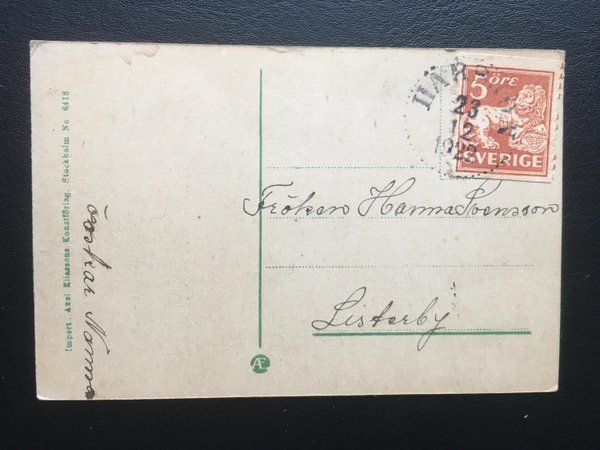 Import. Axel Eliassons Konstförlag. Stockholm No 6418
önskar Nanna
5 ÖRE
SVERIGE
23
12
Fröken Hanna Svensson
Listerby
Æ